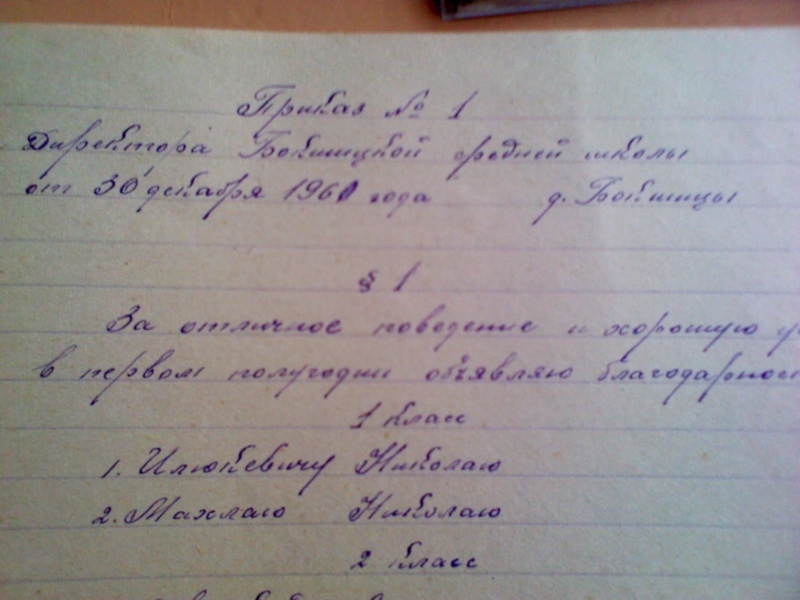 Приказ № 1
Директора Бокшицкой средней школы
от 30 декабря 1961 года д. Бокшицы
§ 1
За отличное поведение и хорошую
в первом полугодии объявляю благодарнос
1 класс
1. Илюкевичу Николаю
2. Махлаю Николаю
2 класс